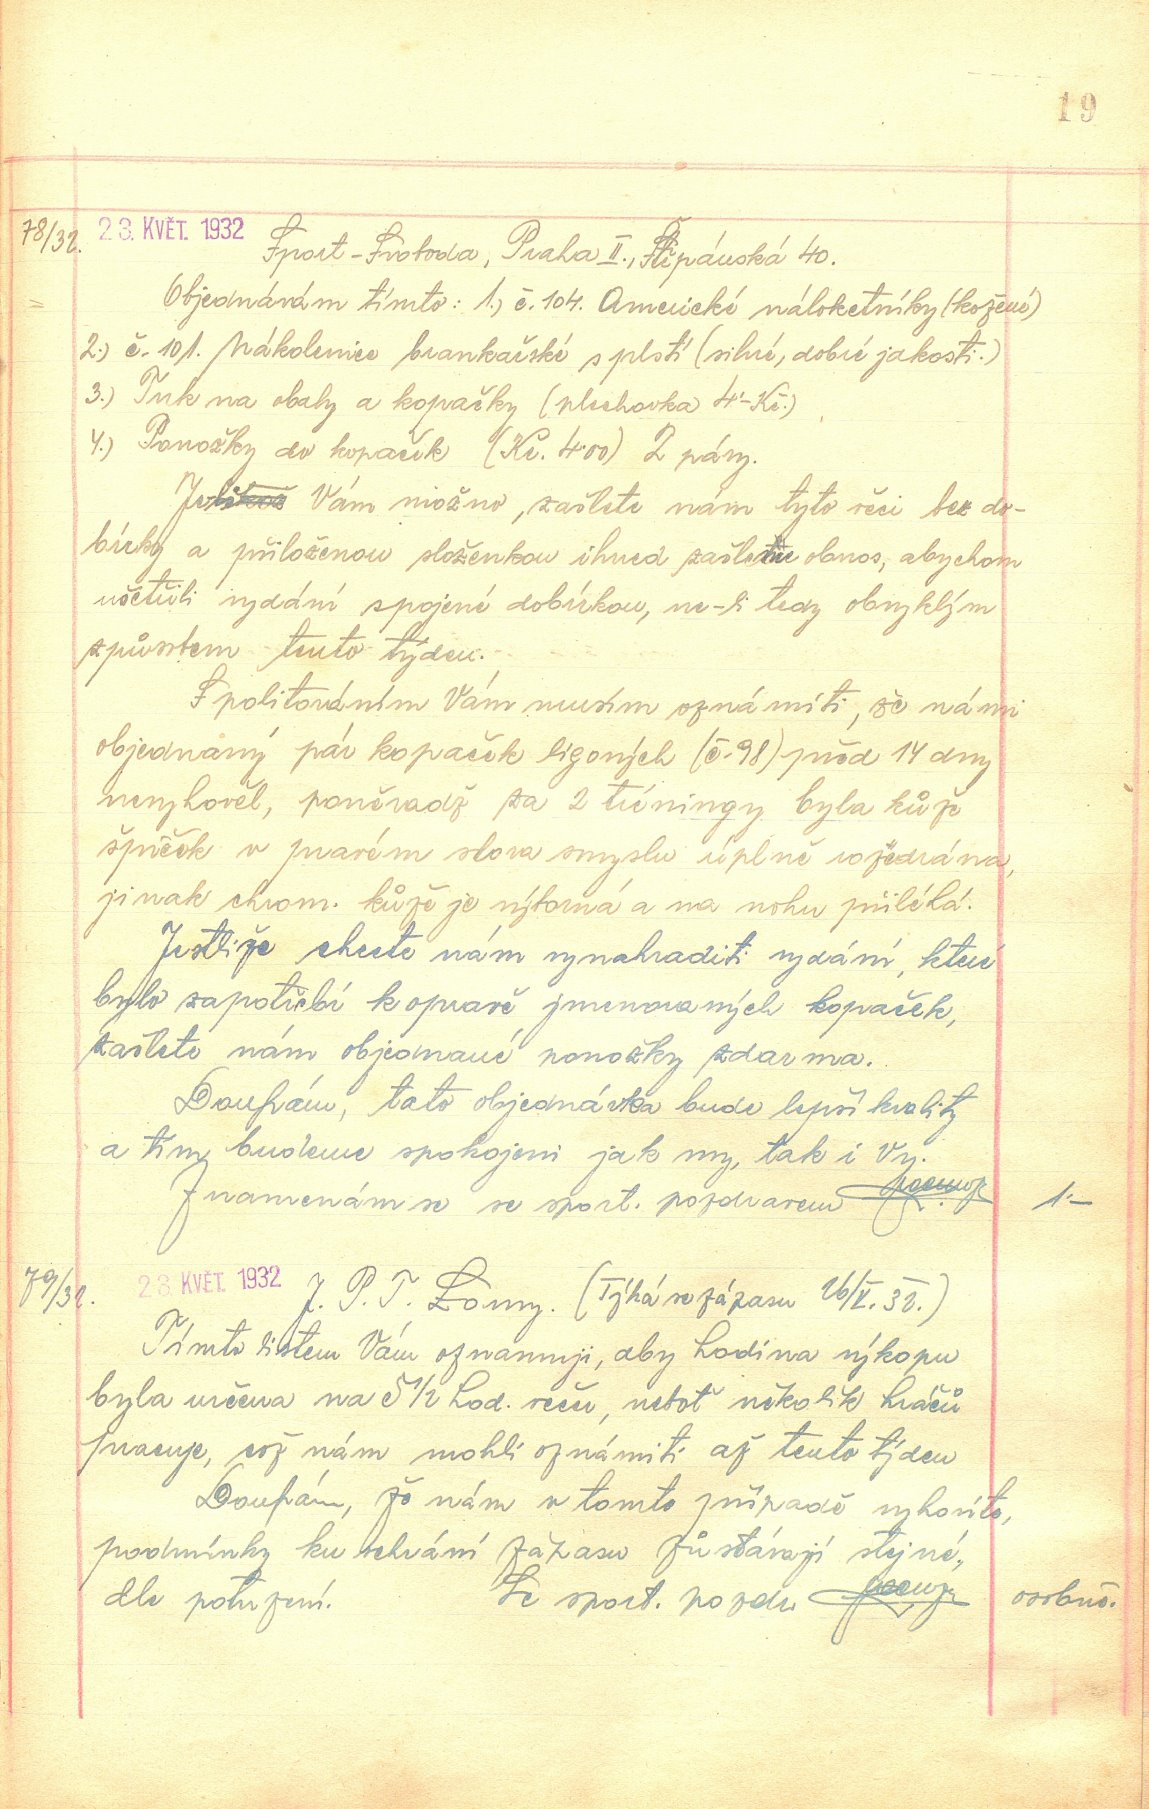 19
78/32. 23. KVĚT. 1932 Sport-Svoboda, Praha II., Štěpánská 40.
Objednávám tímto: 1.) č. 104. Americké náloketníky (kožené)
2.) č. 101. Nákolenice brankařské s plstí (silné, dobré jakosti.)
3.) Tuk na obaly a kopačky (plechovka 4'-Kč.)
4.) Ponožky do kopaček (Kč. 4·00) 2 páry.
Vám možno, zašlete nám tyto věci bez do-
bírky a přiloženou složenkou ihned obnos, abychom
ušetřili vydání spojené dobírkou, ne-li tedy obvyklým
způsobem tento týden.
S politováním Vám musím oznámiti, že námi
objednaný pár kopaček ligových (č. 98) před 14 dny
nevyhověl, poněvadž za 2 tréningy byla kůže
špiček v pravém slova smyslu úplně rozedrána,
jinak chrom. kůže je výborná a na nohu přiléhá.
Jestliže chcete nám vynahraditi vydání, které
bylo zapotřebí k opravě jmenovaných kopaček,
zašlete nám objednané ponožky zdarma.
Doufám, tato objednávka bude lepší kvality
a tím budeme spokojeni jak my, tak i Vy.
Znamenám se se sport. pozdravem 1·-
79/32. 23. KVĚT. 1932 J. P. T. Lomy. (Týká se zápasu 26/V. 32.)
Tímto listem Vám oznamuji, aby hodina výkopu
byla určena na 5 1/2 hod. večer, neboť několik hráčů
pracuje, což nám mohli oznámiti až tento týden
Doufám, že nám v tomto případě vyhovíte,
podmínky ku sehrání zápasu zůstávají stejné,
dle potvrzení. Se sport. pozdr. osobně.